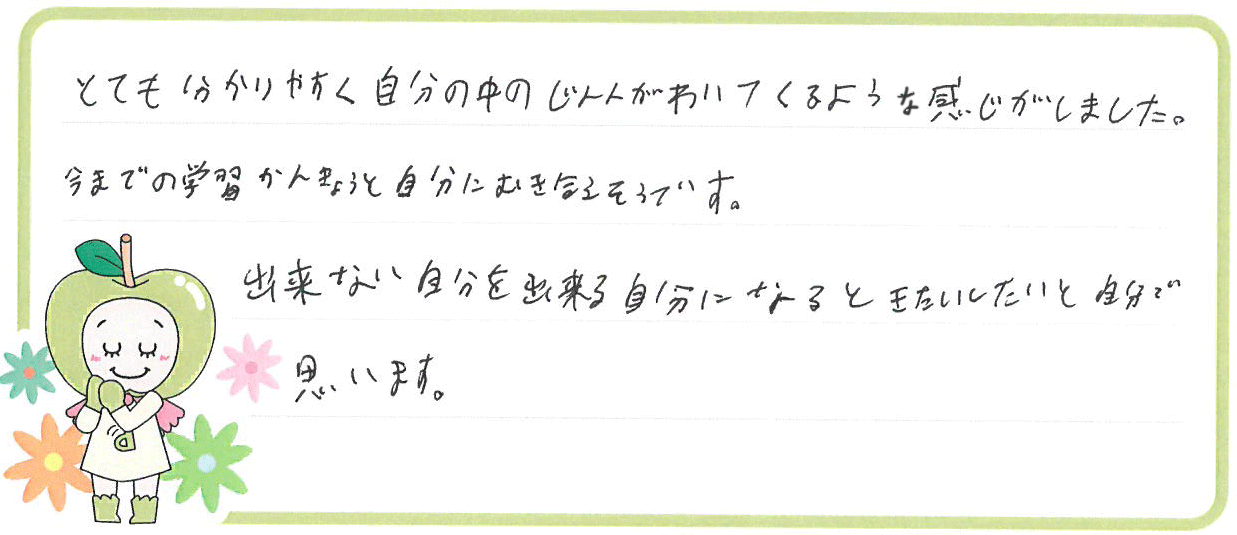 とても分かりやすく自分の中のじんんがわいてくるような感じがしました。
今までの学習かんきょうと自分にむき合えそうです。
出来ない自分を出来る自分になるときたいしたいと自分で
思います。